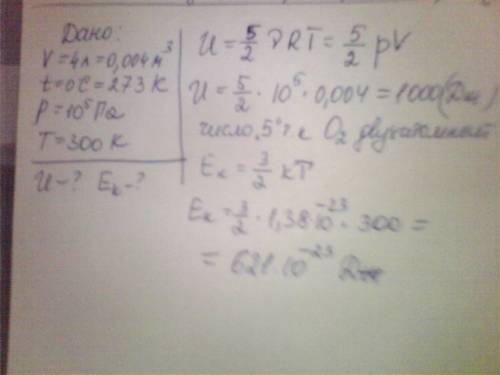 Дано:
V = 4л = 0,004 м³
t = 0°C = 273 K
P = 10⁵ Па
T = 300 K
U - ? Eк - ?
U = 5/2 νRT = 5/2 pV
U = 5/2 · 10⁵ · 0,004 = 1000 (Дж)
число „5" т.к O₂ двухатомный
Eк = 3/2 кT
Eк = 3/2 · 1,38·10⁻²³ · 300 =
= 621·10⁻²³ Дж